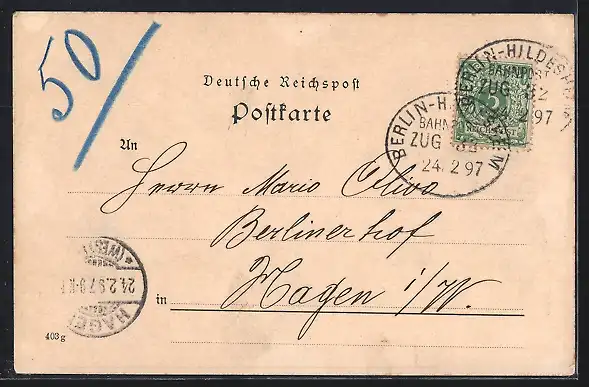 50/
Deutsche Reichspost
Postkarte
BERLIN-HILDESHEIM
BAHNPOST
ZUG 32
24.2 97
5
REICHSPOST
BERLIN-H EM
BAHN
ZUG
24. 2 97
An
Herrn Mario Oliva
Berlinerhof
in Hagen i/W.
HAGEN
(WESTF)
24.2.97.
403g